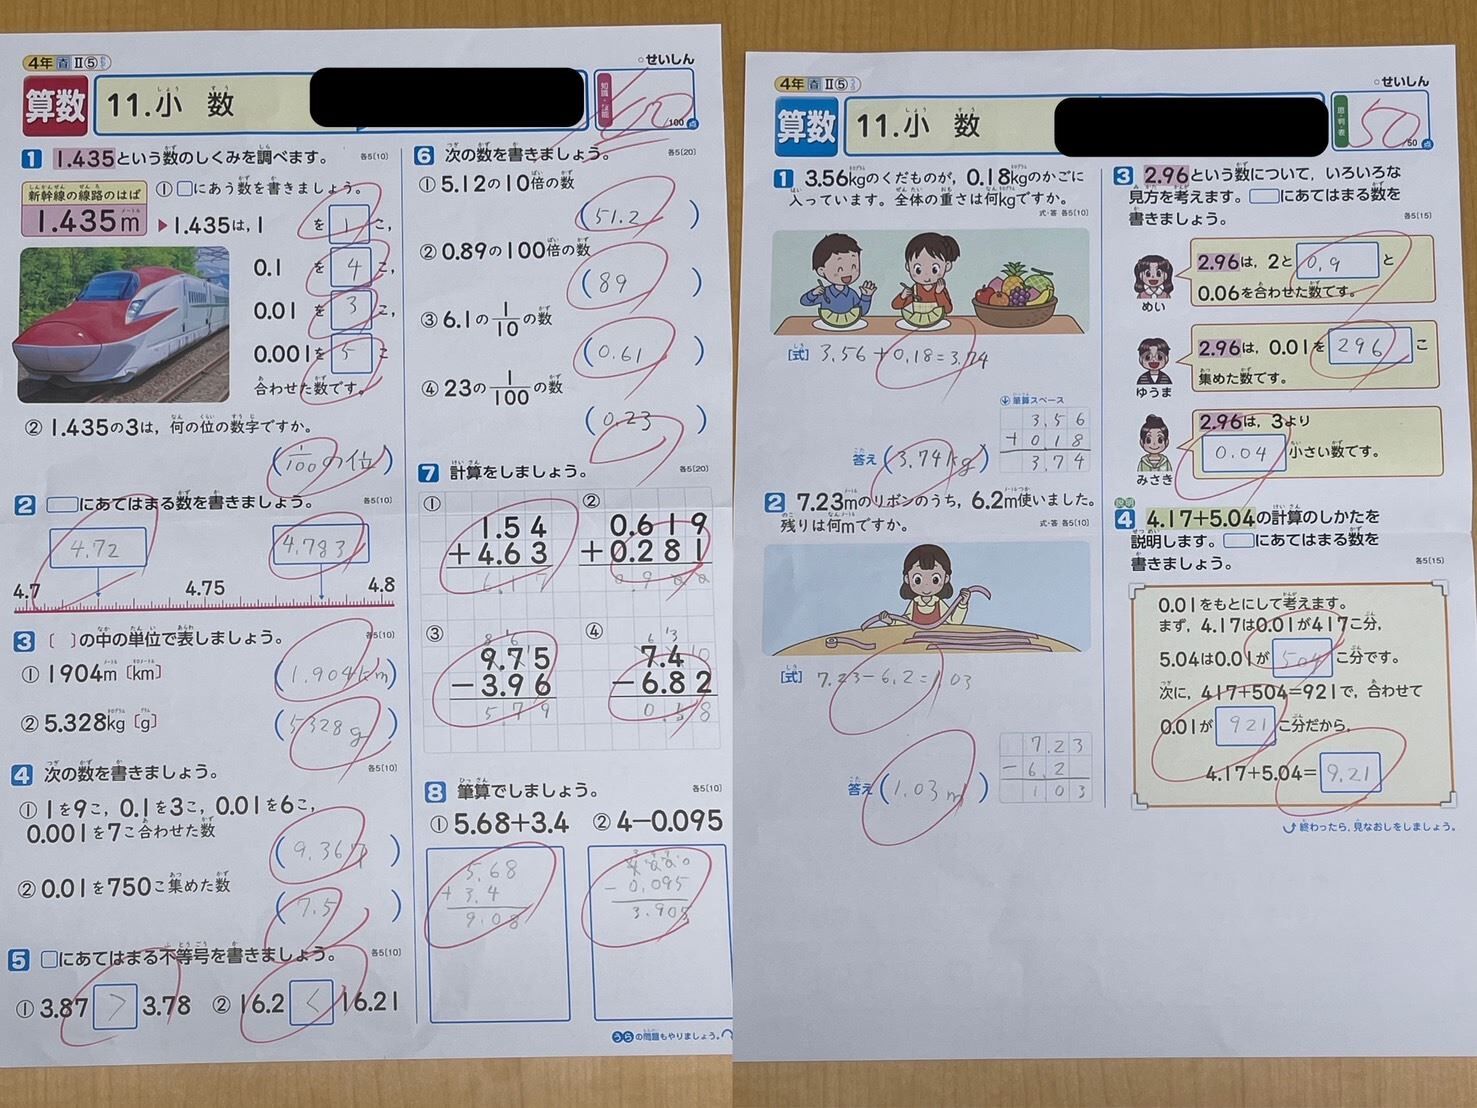 4年 Ⅱ⑤
せいしん
算数 11.小数
知識・技能
100
/100点
1 1.435という数のしくみを調べます。 各5[10]
新幹線の線路のはば
1.435m
① □にあう数を書きましょう。
▶1.435は,1を 1 こ,
0.1を 4 こ,
0.01を 3 こ,
0.001を 5 こ
合わせた数です。
② 1.435の3は,何の位の数字ですか。
(1/100の位)
2 □にあてはまる数を書きましょう。 各5[10]
4.72 4.783
4.7 4.75 4.8
3 〔 〕の中の単位で表しましょう。 各5[10]
① 1904m〔km〕 (1.904km)
② 5.328kg〔g〕 (5328g)
4 次の数を書きましょう。 各5[10]
① 1を9こ,0.1を3こ,0.01を6こ,
0.001を7こ合わせた数 (9.367)
② 0.01を750こ集めた数 (7.5)
5 □にあてはまる不等号を書きましょう。 各5[10]
① 3.87 > 3.78 ② 16.2 < 16.21
6 次の数を書きましょう。 各5[20]
① 5.12の10倍の数
(51.2)
② 0.89の100倍の数
(89)
③ 6.1の1/10の数
(0.61)
④ 23の1/100の数
(0.23)
7 計算をしましょう。 各5[20]
① ②
1.54 0.619
+4.63 +0.281
6.17 0.900
③ ④
9.75 7.4
−3.96 −6.82
5.79 0.58
8 筆算でしましょう。 各5[10]
① 5.68+3.4 ② 4−0.095
5.68 4.000
+3.4 −0.095
9.08 3.905
うらの問題もやりましょう。
4年 Ⅱ⑤
せいしん
算数 11.小数
思・判・表
50
/50点
1 3.56kgのくだものが,0.18kgのかごに
入っています。全体の重さは何kgですか。
式・答 各5[10]
[式] 3.56+0.18=3.74
筆算スペース
3.56
+018
3.74
答え(3.74kg)
2 7.23mのリボンのうち,6.2m使いました。
残りは何mですか。 式・答 各5[10]
[式] 7.23−6.2=1.03
7.23
−6.2
1.03
答え(1.03m)
3 2.96という数について,いろいろな
見方を考えます。□にあてはまる数を
書きましょう。 各5[15]
2.96は,2と 0.9 と
0.06を合わせた数です。
めい
2.96は,0.01を 296 こ
集めた数です。
ゆうま
2.96は,3より
0.04 小さい数です。
みさき
説明
4 4.17+5.04の計算のしかたを
説明します。□にあてはまる数を
書きましょう。 各5[15]
0.01をもとにして考えます。
まず,4.17は0.01が417こ分,
5.04は0.01が 504 こ分です。
次に,417+504=921で,合わせて
0.01が 921 こ分だから,
4.17+5.04= 9.21
終わったら,見なおしをしましょう。